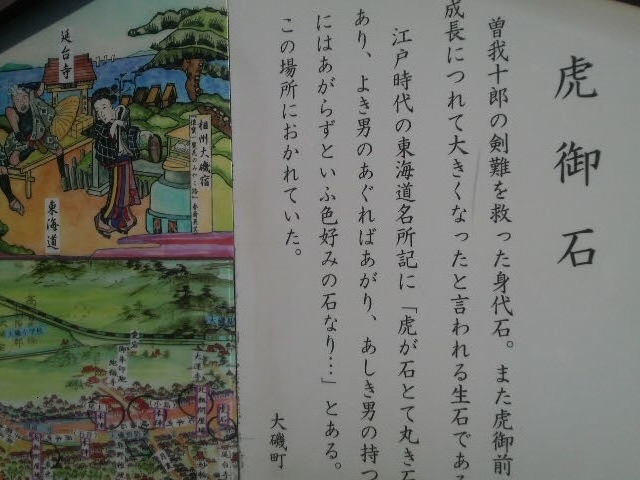 虎御石
曽我十郎の剣難を救った身代石。また虎御前
成長につれて大きくなったと言われる生石であ
江戸時代の東海道名所記に「虎が石とて丸き石
あり、よき男のあぐればあがり、あしき男の持つ
にはあがらずといふ色好みの石なり…」とある。
この場所におかれていた。
大磯町
延台寺
相州大磯宿
東海道